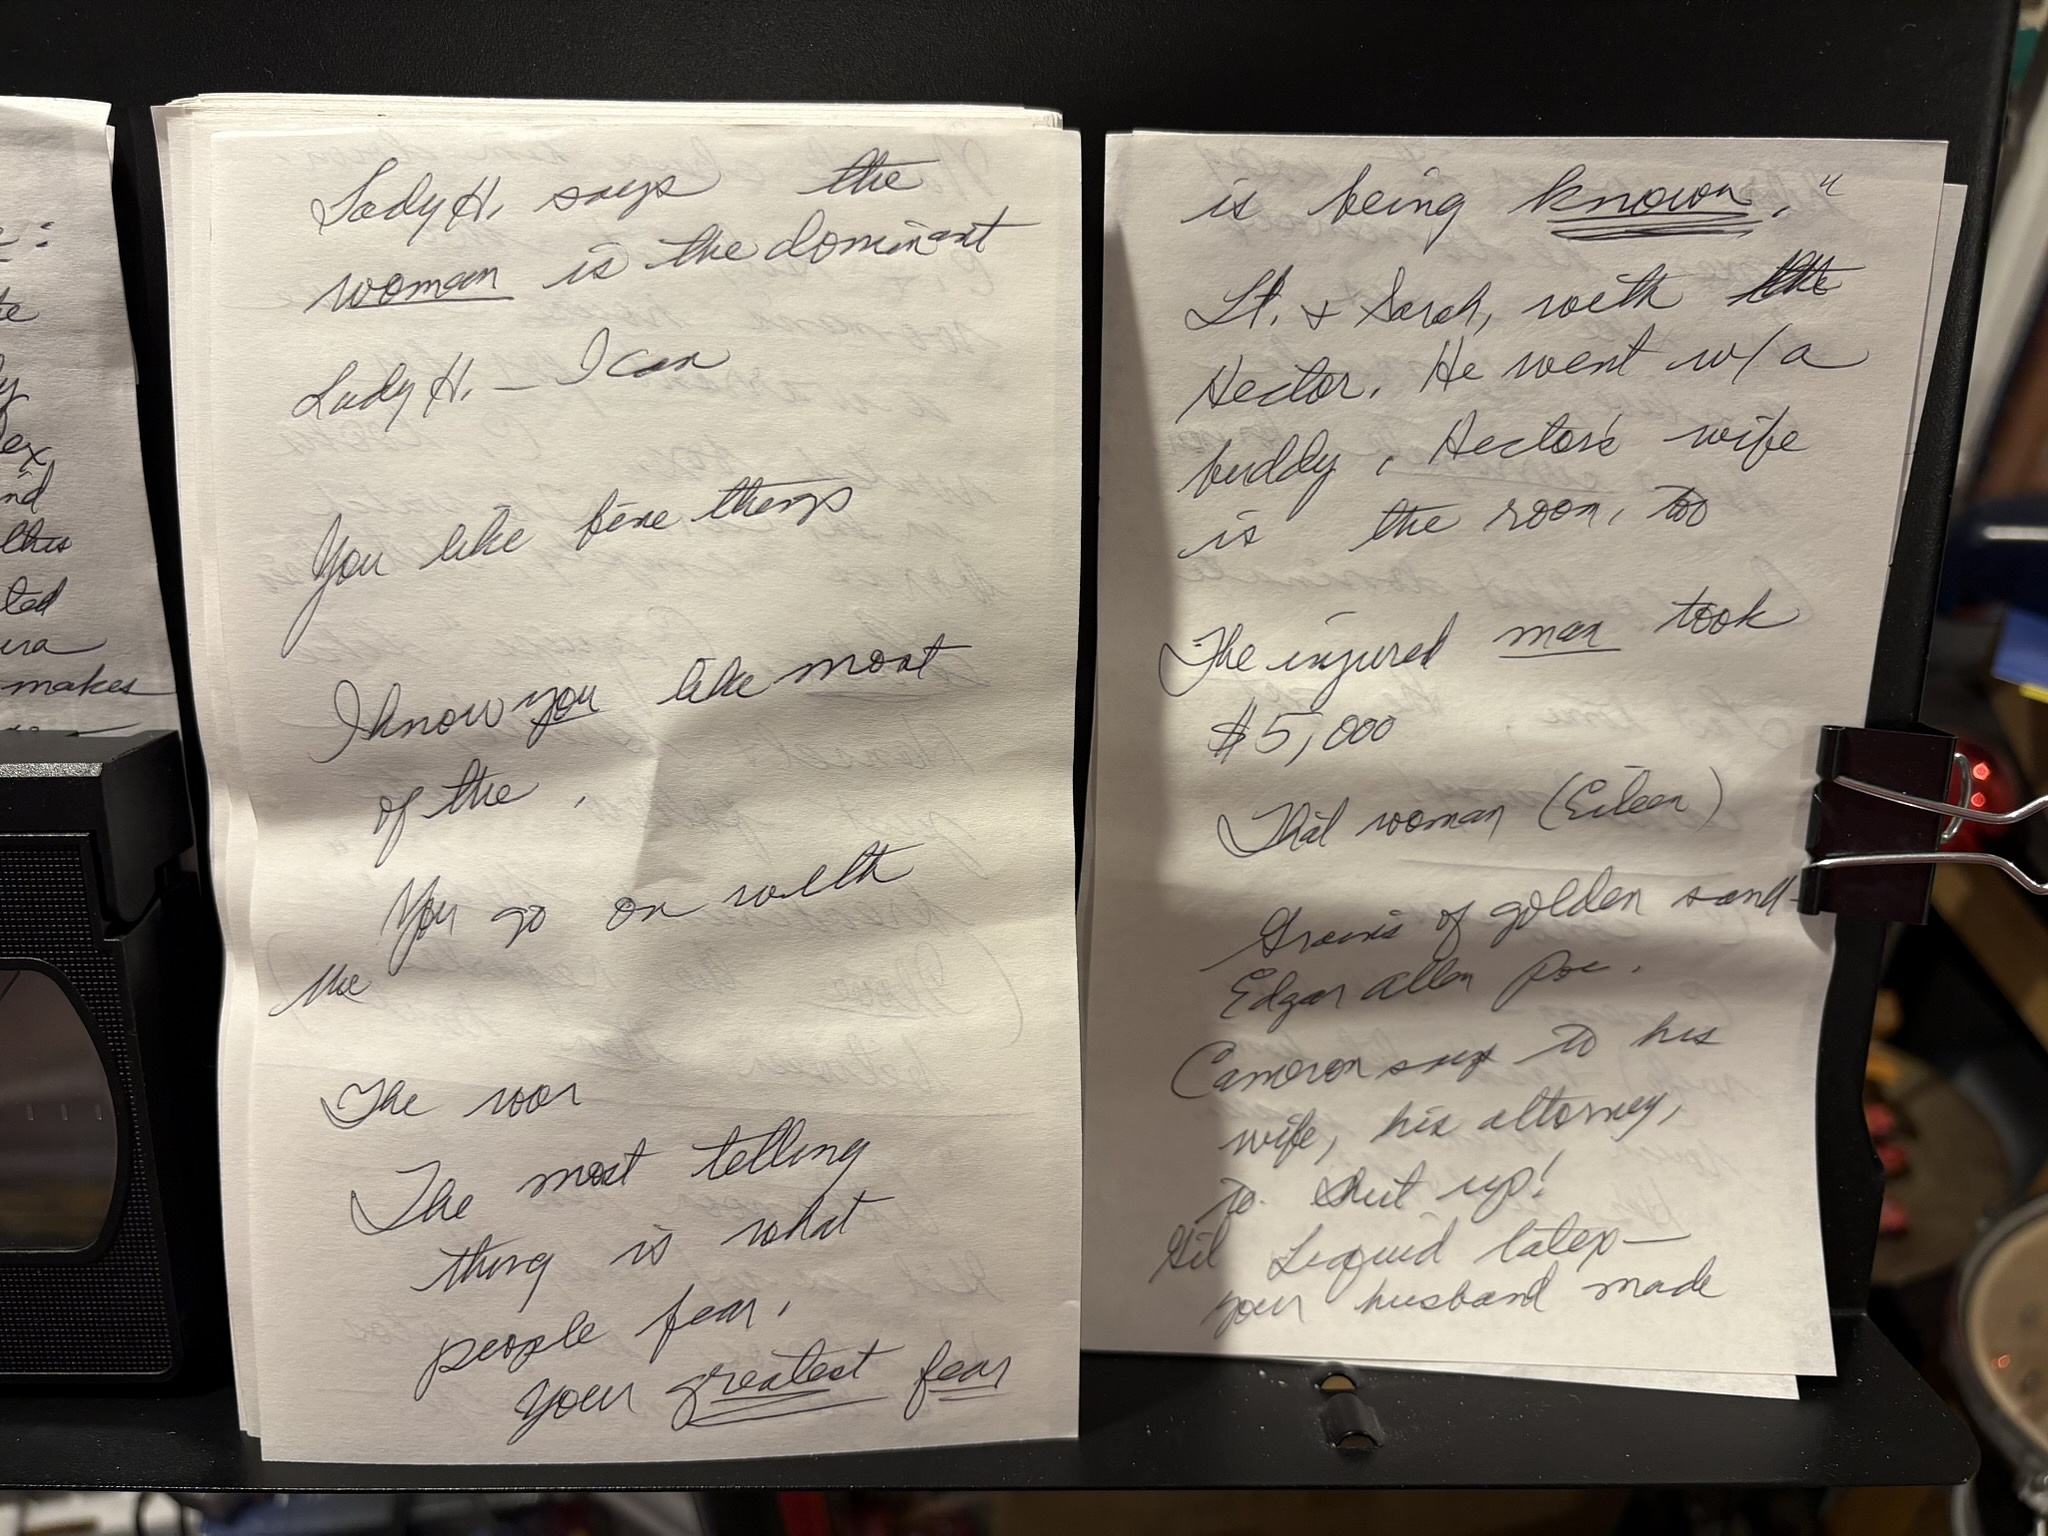 e:
te
ly
ex
nd
this
ted
ura
makes
Lady H. says the
woman is the dominant
Lady H. – I can
You like fine things
I know you like most
of the .
You go on with
the
The roar
The most telling
thing is what
people fear.
Your greatest fear
is being known."
Lt. & Sarah, with the
Hector. He went w/ a
buddy, Hector's wife
is the room, too
The injured man took
$5,000
That woman (Eileen)
Grains of golden sand-
Edgar Allen Poe.
Cameron says to his
wife, his attorney,
to shut up!
Gil Liquid latex—
your husband made